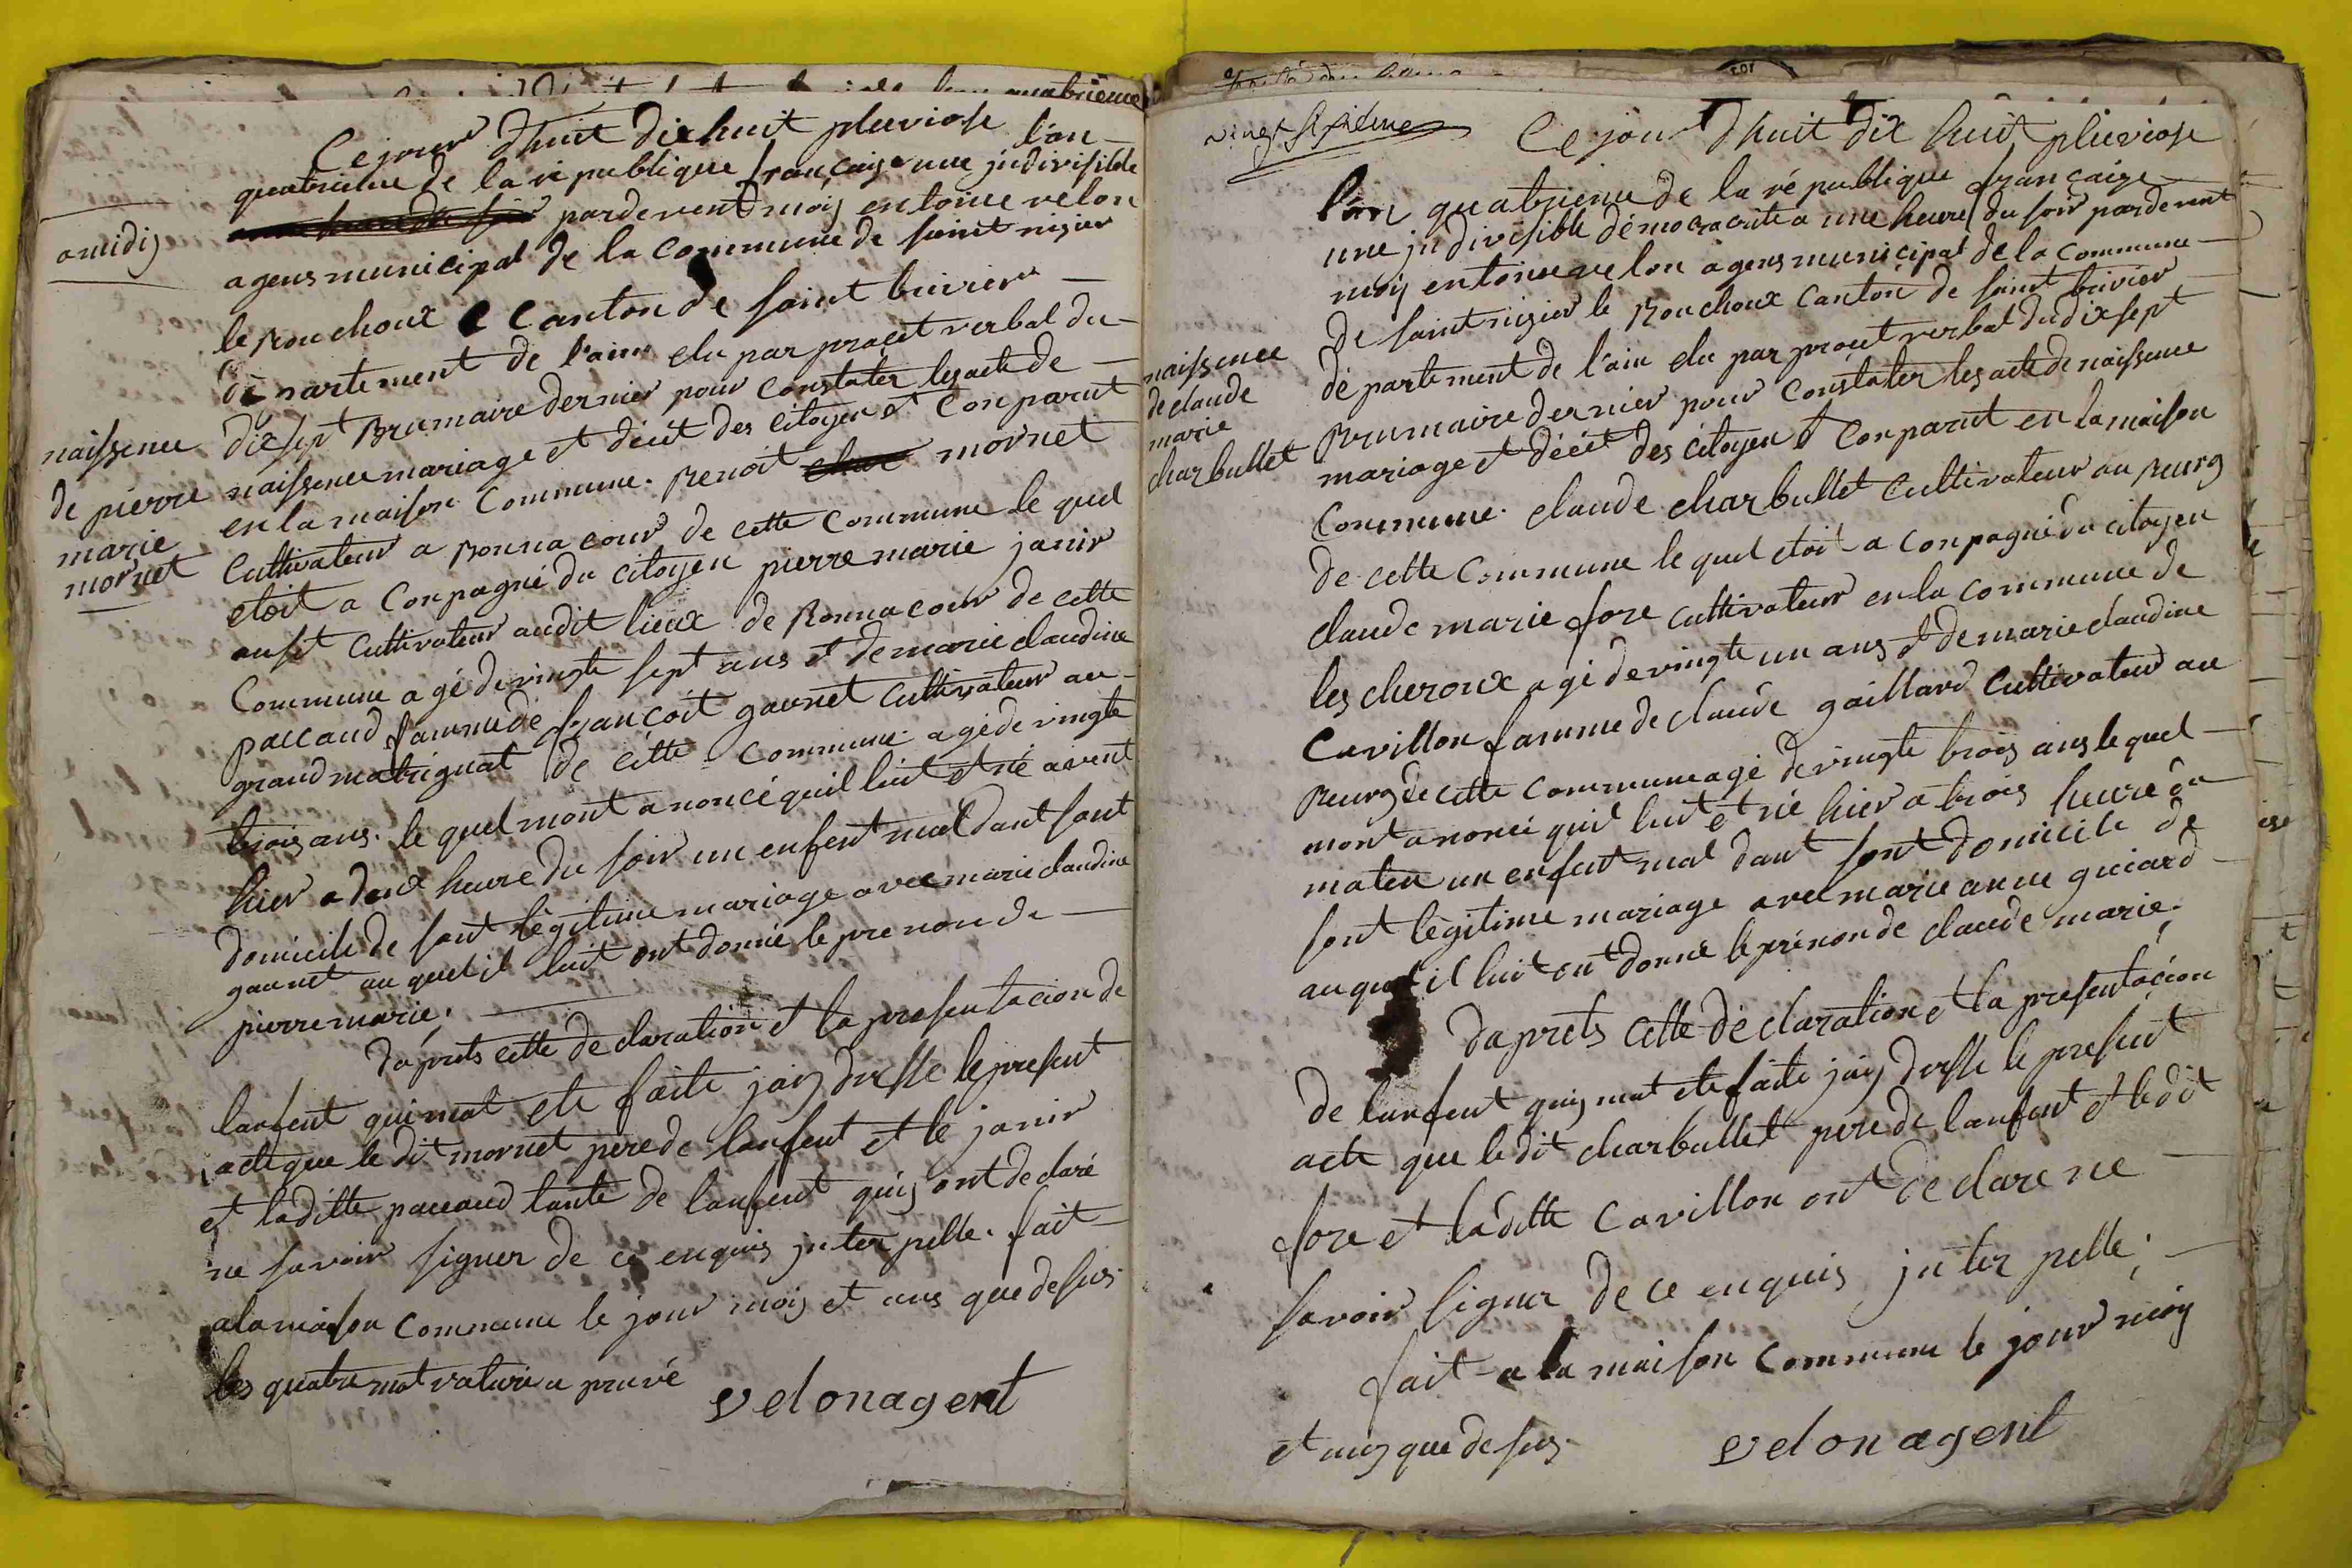 quatrieme
Ce jour d'huit dix huit pluviose l'an
quatrieme de la république française une jndivisible
amidij
pardevent moij entoine velon
agens municipal de la commune de saint nizier
le Bouchoux Canton de saint trivier
département de l'ain elu par procet verbal du
dix sept Brumaire dernier pour constater les acte de
naissence mariage et décèt des citoyen et Conparut
en la maison Commune. Benoit char mornet
naissence
de pierre
marie
mornet
Cultivateur a Bonnacour de cette commune le quel
etoit a conpagné du citoyen pierre marie janir
ausit cultivateur audit lieux de Bonnacour de cette
Commune agé de vingte sept ans et de marie claudine
paccaud famme de françoit gaunet cultivateur au
grand matrignat de cette commune agé de vingte
trois ans. le quel mont anoncé quil luit et né avent
hier a deux heure du soir un enfent mal dant sont
domicile de sont légitime mariage avec marie claudine
gaunet au quel il luit ont donné le prenon de
pierre marie.
daprets cette declaration et la presentacion de
lanfent qui mat ete faite jaij dresse le present
acte que le dit mornet pere de lanfent et le janir
et laditte paccaud tante de lanfent quij ont declaré
ne savoir signer de ce enquis jnterpelle. fait
a la maison commune le jour mois et ans que desus
les quatre mot rature a pruvé
velon agent
vingt sixieme
Ce jour d'huit dix huit pluviose
l'an quatrieme de la république françaize
une jndivisible démocratite a une heure du soir pardevent
moij entoine velon agens municipal de la commune
de saint nizier le Bouchoux Canton de saint trivier
département de l'ain elu par procet verbal du dix sept
Brumaire dernier pour constater les acte de naissence
mariage et décèt des citoyen et Conparut en la maison
naissence
de claude
marie
charbullet
Commune. claude charbullet cultivateur au Bourg
de cette commune le quel etoit a conpagné du citoyen
claude marie fore cultivateur en la commune de
les cheroux agé de vingte un ans et de marie claudine
Cavillon famme de claude gaillard cultivateur au
Bourg de cette commune agé de vingte trois ans le quel
mont anoncé quil luit et né hier a trois heure du
maten un enfent mal dant sont domicile de
sont légitime mariage avec marie anne guiard
au quel il luit ont donné le prénon de claude marie.
daprets cette déclaration et la presentacion
de lanfent quij mat ete faite jaij dresse le present
acte que le dit charbullet pere de lanfent et le dit
fore et laditte Cavillon ont declare ne
savoir signer de ce enquis jnterpelle.
fait a la maison commune le jour moij
et ans que desus.
velon agent